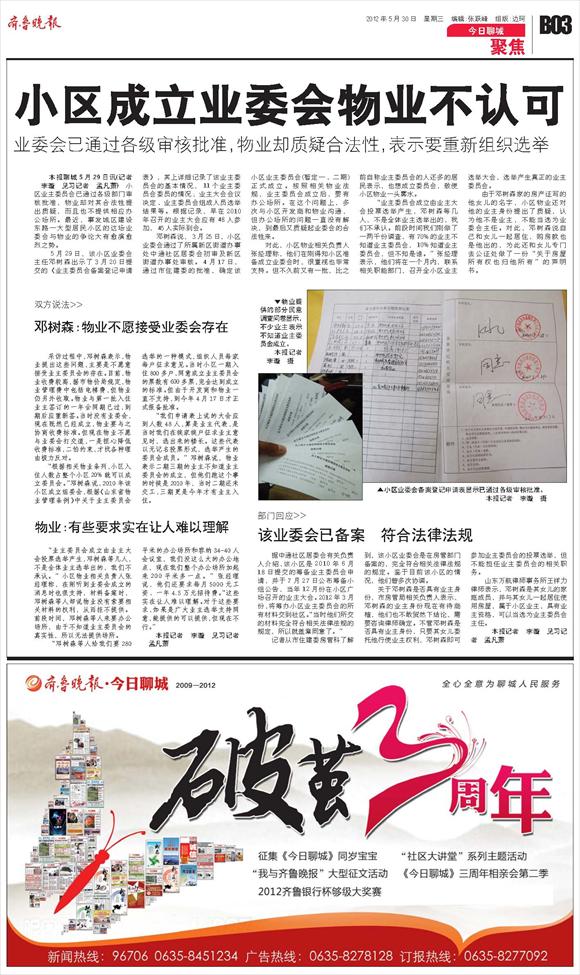 齐鲁晚报
2012年5月30日 星期三 编辑:张跃峰 组版:边珂
今日聊城
聚焦
B03
小区成立业委会物业不认可
业委会已通过各级审核批准，物业却质疑合法性，表示要重新组织选举
本报聊城5月29日讯(记者
李璇 见习记者 孟凡萧) 小
区业主委员会已通过各级部门审
核批准，物业却对其合法性提
出质疑，而且也不提供相应办
公场所。最近，事发城区建设
东路一大型居民小区的这场业
委会与物业的争论大有愈演愈
烈之势。
5月29日，该小区业委会
主任邓树森出示了3月20日提
交的《业主委员会备案登记申请
表》，其上详细记录了该业主委
员会的基本情况，11个业主委
员会委员的情况，业主大会会议
决定，业主委员会组成人员选举
结果等。根据记录，早在2010
年召开的业主大会应有48人参
加，45人实际到会。
邓树森说，3月25日，小区
业委会通过了所属新区街道办事
处中通社区居委会初审及新区
街道办事处审核。4月17日，
通过市住建委的批准，确定该
小区业主委员会(暂定一、二期)
正式成立。按照相关物业法
规，业主委员会成立后，要有
办公场所。在这个问题上，多
次与小区开发商和物业沟通，
但办公场所的问题一直没有解
决，到最后又质疑起业委会的合
法性来。
对此，小区物业相关负责人
张经理称，他们在刚得知小区准
备成立业委会时，很重视也非常
支持。但不久前又有一批，比之
前自称业主委员会的人还多的居
民表示，也想成立委员会，致使
小区物业一头雾水。
“业主委员会成立由业主大
会投票选举产生，邓树森等几
人，不是全体业主选举出的，我
们不承认。前段时间我们刚做了
一两千份调查，有70%的业主不
知道业主委员会，10%知道业主
委员会，但不知是谁。”张经理
表示，他们将在一个月内，联系
相关职能部门，召开全小区业主
选举大会，选举产生真正的业主
委员会。
由于邓树森家的房产证写的
他女儿的名字，小区物业还对
他的业主身份提出了质疑，认
为他不是业主，不能当选为业
委会主任。对此，邓树森说自
己和女儿一起居住，购房款也
是他出的，为此还和女儿专门
去公证处做了一份“关于房屋
所有权也归他所有”的声明
书。
双方说法>>
邓树森：物业不愿接受业委会存在
采访过程中，邓树森表示，物
业提出这些问题，主要是不愿意
接受业主委员会的存在。目前，物
业收费较高，据市物价局规定，物
业管理费中包括电梯费，但物业
仍另外收取。物业与第一批入住
业主签订的一年合同期已过，到
期后应重新签。当时没有业委会，
现在既然已经成立，物业要与之
协商收费标准。但现在物业不愿
与业委会打交道，一是担心降低
收费标准，二怕约束，才找各种理
由极力反对。
“根据相关物业条列，小区入
住人数占整个小区20%就可以成
立委员会。”邓树森说，2010年该
小区成立组委会，根据《山东省物
业管理条例》中关于业主委员会
选举的一种模式，组织人员每家
每户征求意见。当时小区一期入
住800多户，同意成立业主委员会
的票数有600多票，完全达到成立
的标准。但由于开发商和物业一
直不支持，到今年4月17日才正
式报备批准。
“我们申请表上说的大会应
到人数48人，算是业主代表，是
当时我们在挨家挨户征求业主意
见时，选出来的楼长。这些代表
以无记名投票形式，选举产生的
委员会成员。”邓树森说，物业
表示二期三期的业主不知道业主
委员会的成立，但他们换这个事
的时候是2010年，当时二期还未
交工，三期更是今年才有业主入
住。
物业：有些要求实在让人难以理解
“业主委员会成立由业主大
会投票选举产生，邓树森等几人，
不是全体业主选举出的，我们不
承认。”小区物业相关负责人张
经理称，在刚听到业委会成立的
消息时也很支持，材料备案时，
邓树森等人却说物业没有索要相
关材料的权利，从而拒不提供。
前段时间，邓树森等人来要办公
场所，由于不知道业主委员会的
真实性，所以无法提供场所。
“邓树森等人给我们要280
平米的办公场所和容纳34-40人
会议室，我们没这么大的办公地
点，现在我们整个办公场所加起
来200平米多一点。”张经理
说，他们还要求每月5000元工
资，一年4.5万元招待费。“这些
实在让人难以理解。对于这些要
求，如果是广大业主选举支持同
意，能提供的可以提供，但现在不
行。”
本报记者 李璇 见习记者
孟凡萧
▼物业提
供的部分民意
调查问卷显示，
不少业主表示
不知道业主委
员会成立。
本报记者
李璇 摄
▲小区业委会备案登记申请表显示已通过各级审核批准。
本报记者 李璇 摄
部门回应>>
该业委会已备案 符合法律法规
据中通社区居委会有关负责
人介绍，该小区是2010年6月
18日提交的筹备业主委员会申
请，并于7月27日公布筹备小
组公告，当年12月份在小区广
场召开的业主大会。2012年3月
份，将筹办小区业主委员会的所
有材料交到社区。“当时他们所交
的材料完全符合相关法律法规的
规定，所以就盖章同意了。”
记者从市住建委房管科了解
到，该小区业委会是在房管部门
备案的，完全符合相关法律法规
的规定。鉴于目前该小区的情
况，他们曾多次协调。
关于邓树森是否具有业主身
份，市房管局相关负责人表示，
邓树森的业主身份现在有待商
榷，他们也不敢贸然下结论，需
要咨询律师确定。不管邓树森是
否具有业主身份，只要其女儿委
托他行使业主权利，邓树森即可
参加业主委员会的投票选举，但
不能担任业主委员会的相关职
务。
山东万航律师事务所王祥力
律师表示，邓树森是其女儿的家
庭成员，并与其女儿一起居住使
用房屋，属于小区业主，具有业
主资格，可以当选为业主委员会
主任。
本报记者 李璇 见习记者
孟凡萧
齐鲁晚报·今日聊城 2009—2012
全心全意为聊城人民服务
破茧3周年
征集《今日聊城》同岁宝宝 “社区大讲堂”系列主题活动
“我与齐鲁晚报”大型征文活动 《今日聊城》三周年相亲会第二季
2012齐鲁银行杯够级大奖赛
新闻热线：96706 0635-8451234 广告热线：0635-8278128 订报热线：0635-8277092